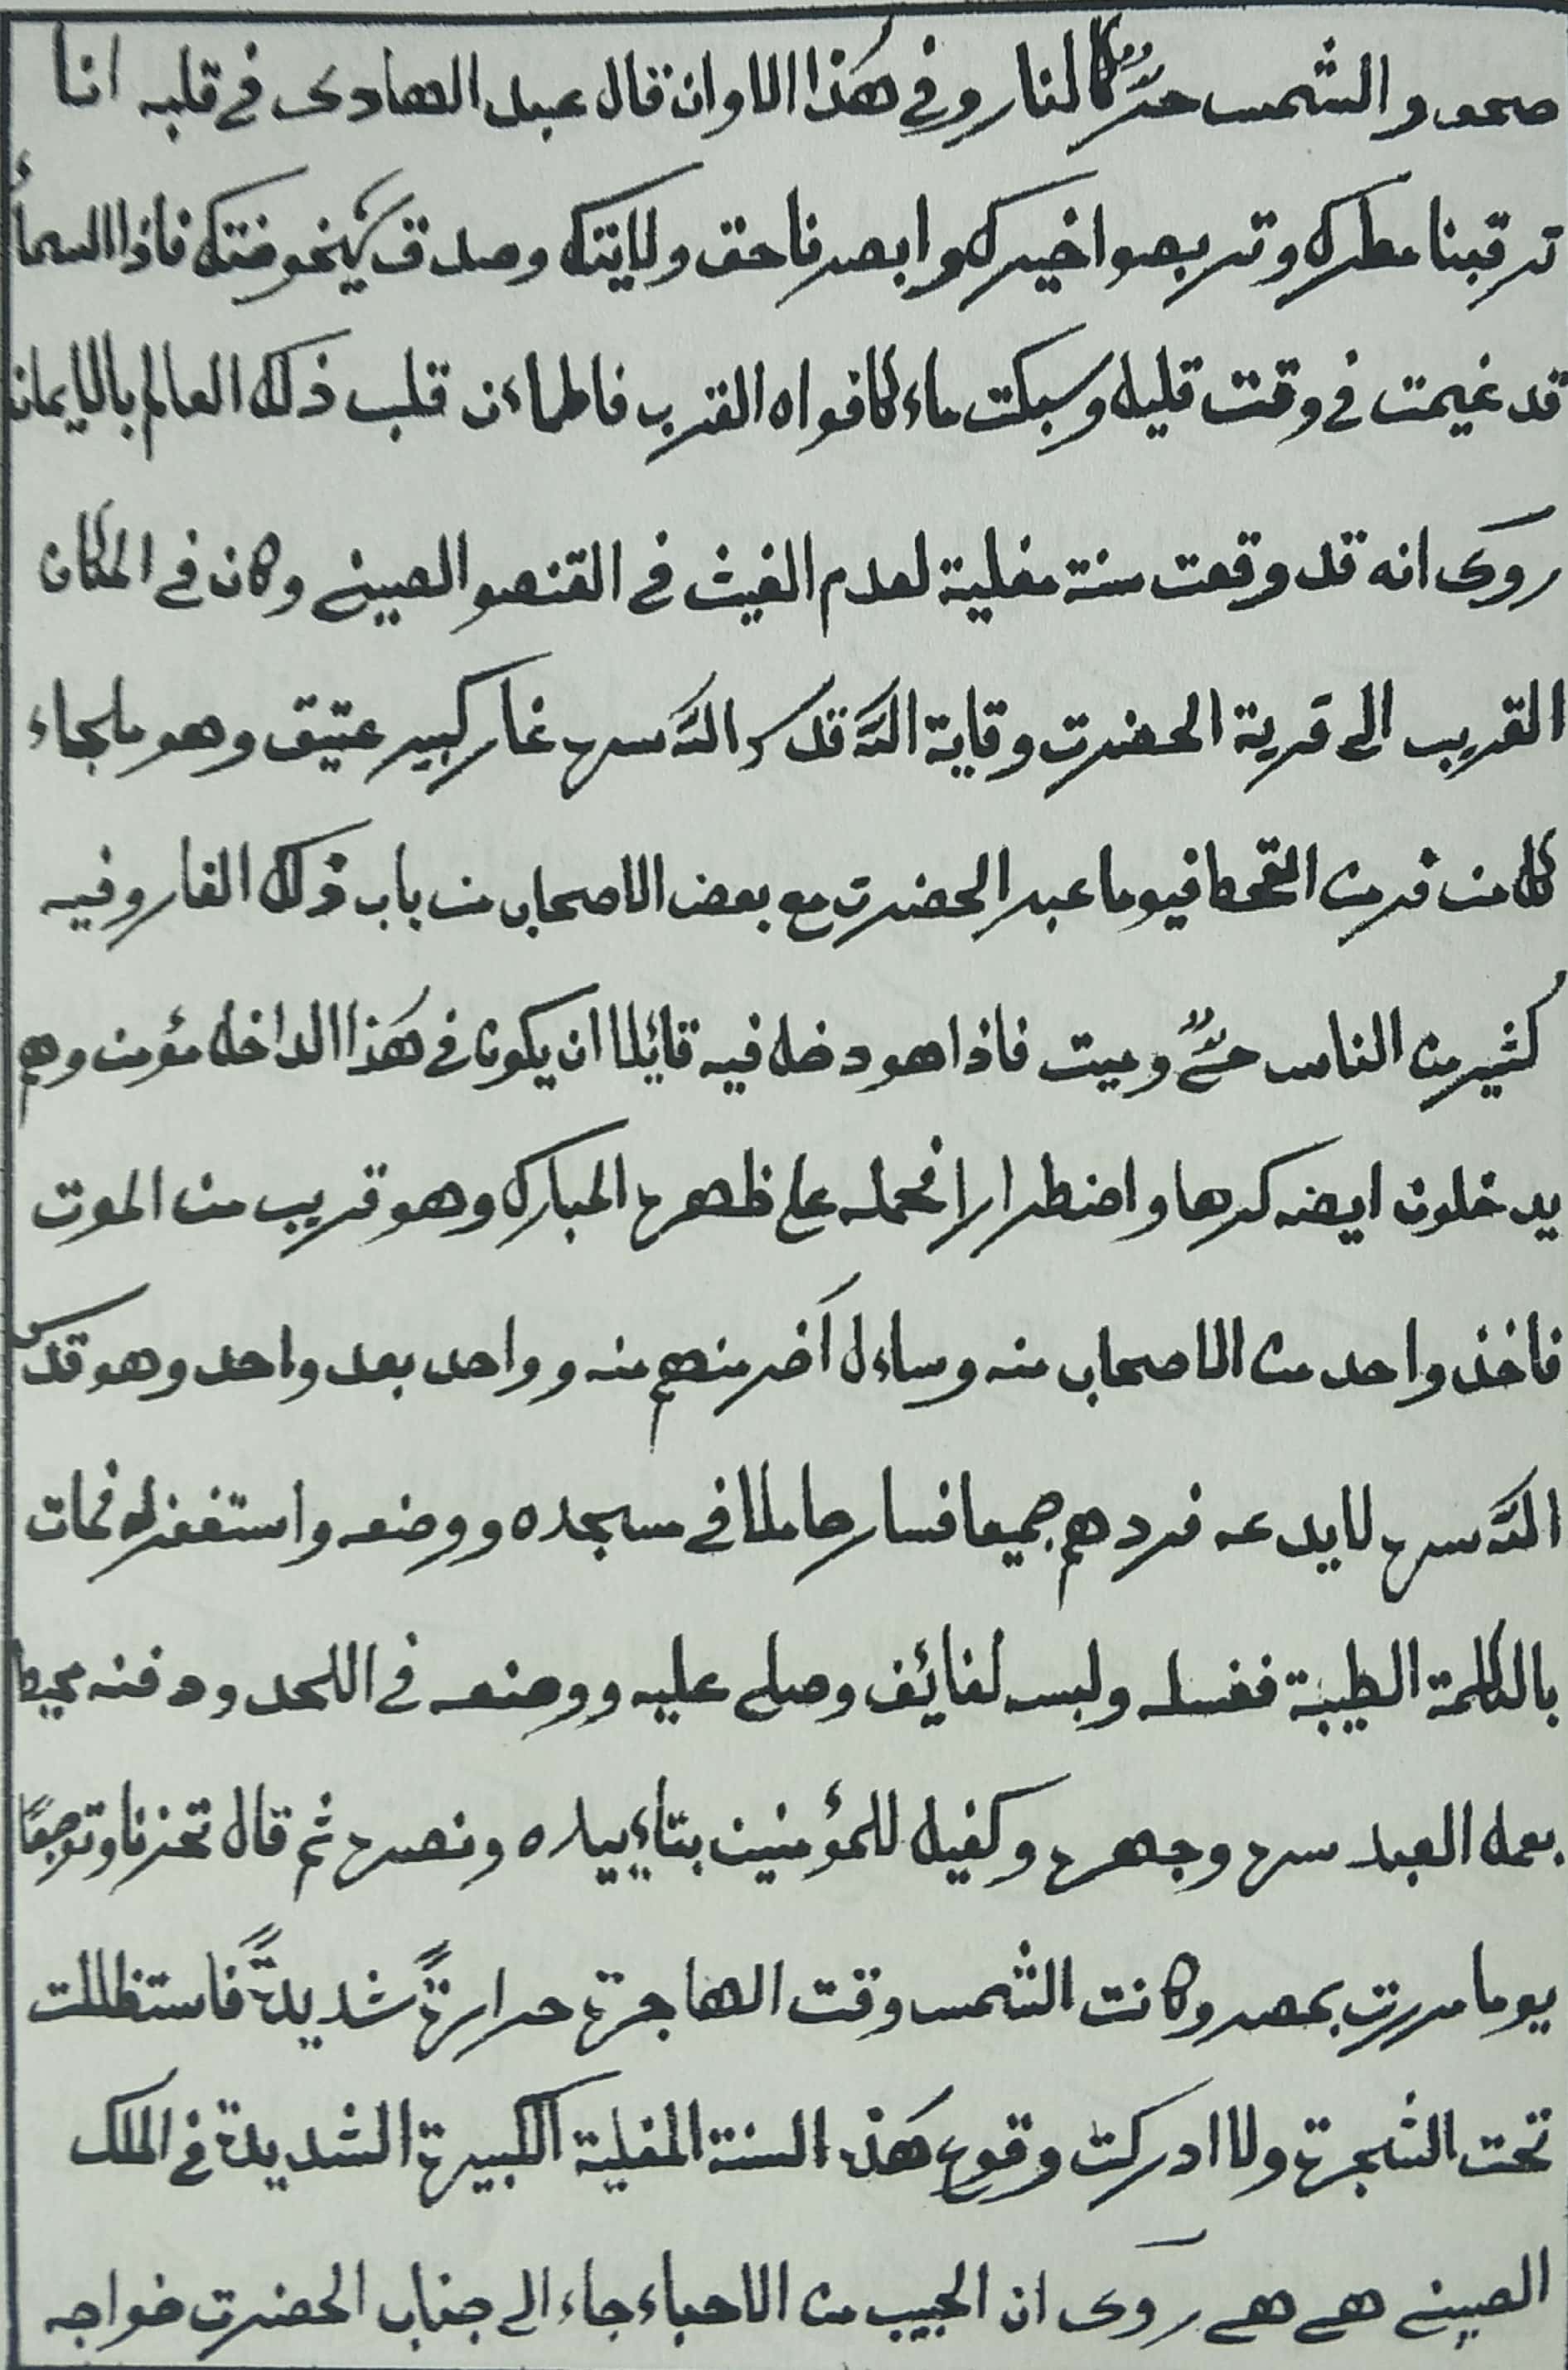 صحو والشمس حرٌّ كالنار وفي هٰذا الاوان قال عبد الهادى في قلبه انا
ترقبنا مطرك وتربصوا خيرك وابصرنا حق ولايتك وصدق فاذا السماء
قد غيمت في وقت قليل وسبكت ماء كافواه القرب فاطماءن قلب ذلك العالم بالايمان
روى انه قد وقعت سنة مغلية لعدم الغيث في القنصو الصيني وكان في المكان
القريب الى قرية الحضرت وقاية الله قدس الله سره غار كبير عتيق وهو ملجاء
كل من فر من القحط فيوما عبر الحضرت مع بعض الاصحاب من باب ذلك الغار وفيه
كثير من الناس حيٌّ وميت فاذا هو دخل فيه قائلا ان يكون في هٰذا الداخل مؤمن وهم
يدخلون ايضه كرها واضطرارا فحمله على ظهره المبارك وهو قريب من الموت
فاخذ واحد من الاصحاب منه وساءل آخر منهم منه وواحد بعد واحد وهو قدس
الله سره لا يدعه فردهم جميعا فسار حاملا في مسجده ووضعه واستغفر له فمات
بالكلمة الطيبة فغسله ولبسه لفائف وصلى عليه ووضعه في اللحد ودفنه محيط
بعمل العبد سره وجهره وكفيل للمؤمنين بتاءييده ونصره ثم قال تحزنا وتوجعًا
يوما مررت بمصر وكانت الشمس وقت الهاجرة حرارةً شديدةً فاستظللت
تحت الشجرة ولا ادركت وقوع هٰذه السنة المغلية الكبيرة الشديدة في الملك
الصيني هے هے روى ان الحبيب من الاحباء جاء الى جناب الحضرت خواجه